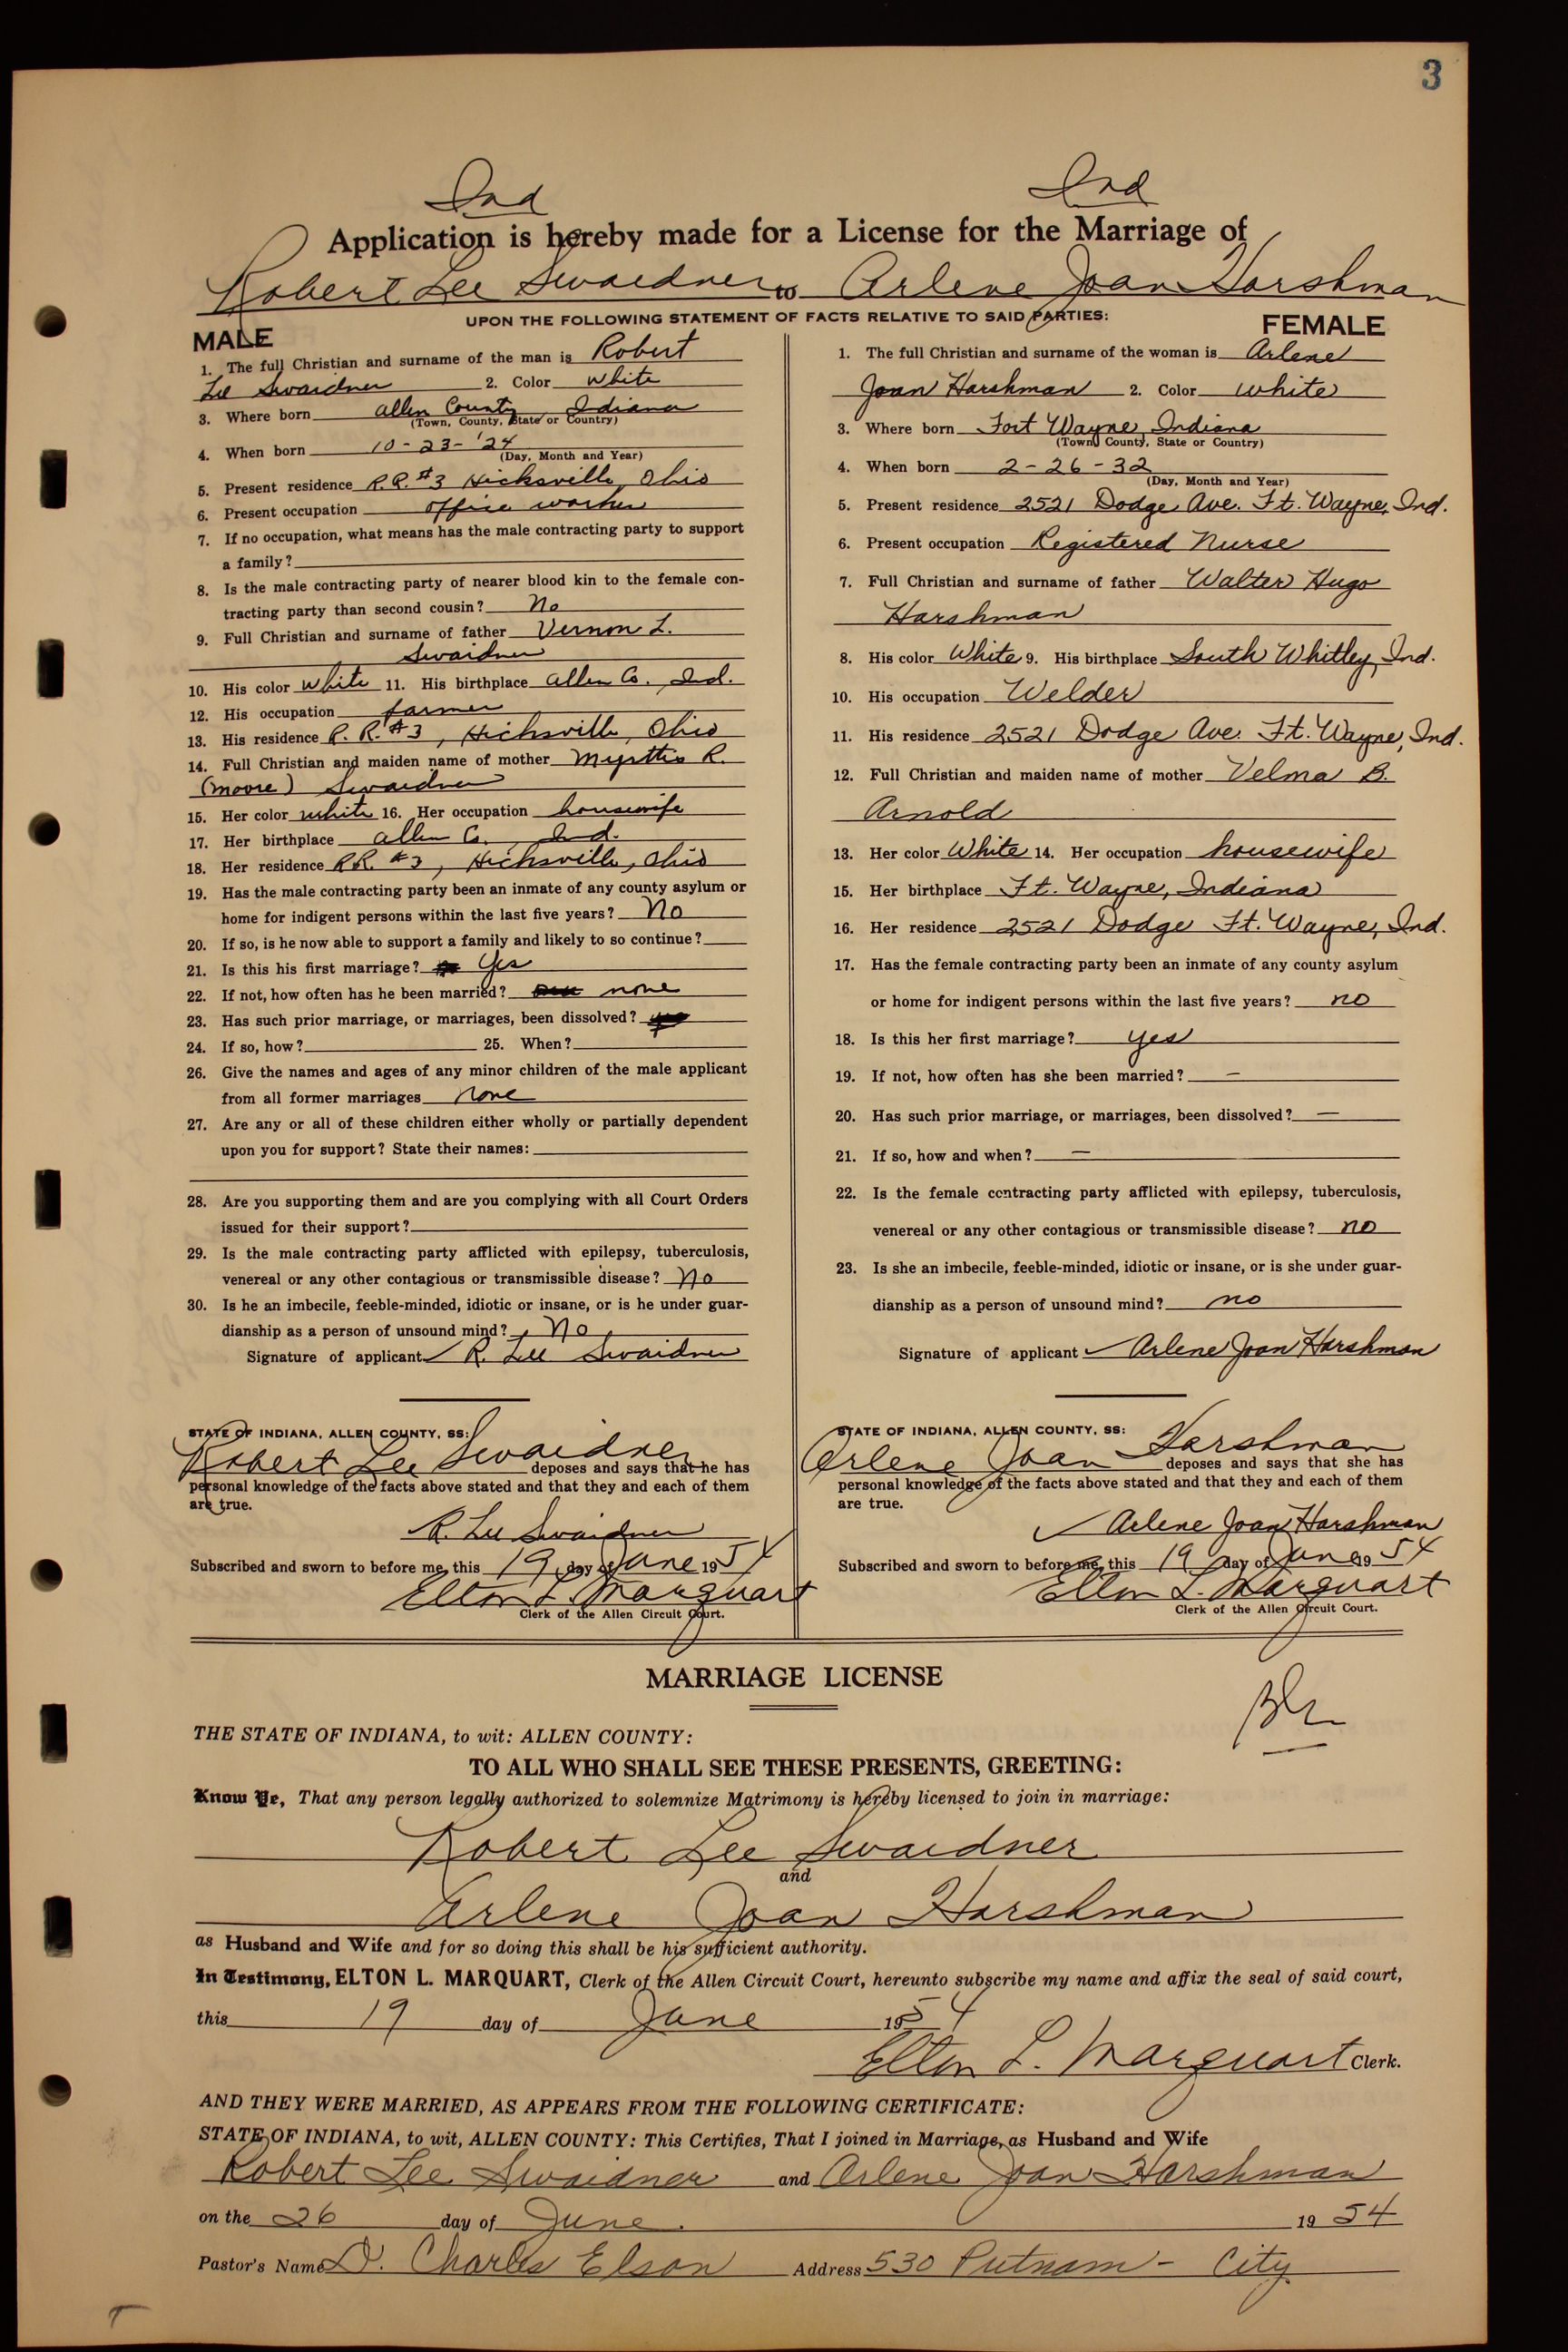 3
Ind Ind
Application is hereby made for a License for the Marriage of
Robert Lee Swaidner to Arlene Joan Harshman
UPON THE FOLLOWING STATEMENT OF FACTS RELATIVE TO SAID PARTIES:
MALE
1. The full Christian and surname of the man is Robert
Lee Swaidner 2. Color white
3. Where born Allen County Indiana
(Town, County, State or Country)
4. When born 10-23-'24
(Day, Month and Year)
5. Present residence R.R. #3 Hicksville, Ohio
6. Present occupation office worker
7. If no occupation, what means has the male contracting party to support
a family?
8. Is the male contracting party of nearer blood kin to the female con-
tracting party than second cousin? No
9. Full Christian and surname of father Vernon L.
Swaidner
10. His color white 11. His birthplace Allen Co., Ind.
12. His occupation farmer
13. His residence R. R. #3, Hicksville, Ohio
14. Full Christian and maiden name of mother R.
(Moore) Swaidner
15. Her color white 16. Her occupation housewife
17. Her birthplace Allen Co. Ind.
18. Her residence RR. #3, Hicksville, Ohio
19. Has the male contracting party been an inmate of any county asylum or
home for indigent persons within the last five years? No
20. If so, is he now able to support a family and likely to so continue?
21. Is this his first marriage? Yes
22. If not, how often has he been married? none
23. Has such prior marriage, or marriages, been dissolved?
24. If so, how? 25. When?
26. Give the names and ages of any minor children of the male applicant
from all former marriages None
27. Are any or all of these children either wholly or partially dependent
upon you for support? State their names:
28. Are you supporting them and are you complying with all Court Orders
issued for their support?
29. Is the male contracting party afflicted with epilepsy, tuberculosis,
venereal or any other contagious or transmissible disease? No
30. Is he an imbecile, feeble-minded, idiotic or insane, or is he under guar-
dianship as a person of unsound mind? No
Signature of applicant R. Lee Swaidner
STATE OF INDIANA, ALLEN COUNTY, SS:
Robert Lee Swaidner deposes and says that he has
personal knowledge of the facts above stated and that they and each of them
are true.
R. Lee Swaidner
Subscribed and sworn to before me, this 19 day of June 1954
Elton L. Marquart
Clerk of the Allen Circuit Court.
FEMALE
1. The full Christian and surname of the woman is Arlene
Joan Harshman 2. Color white
3. Where born Fort Wayne, Indiana
(Town, County, State or Country)
4. When born 2-26-32
(Day, Month and Year)
5. Present residence 2521 Dodge Ave. Ft. Wayne, Ind.
6. Present occupation Registered Nurse
7. Full Christian and surname of father Walter Hugo
Harshman
8. His color White 9. His birthplace South Whitley, Ind.
10. His occupation Welder
11. His residence 2521 Dodge Ave. Ft. Wayne, Ind.
12. Full Christian and maiden name of mother Velma B.
Arnold
13. Her color White 14. Her occupation housewife
15. Her birthplace Ft. Wayne, Indiana
16. Her residence 2521 Dodge Ft. Wayne, Ind.
17. Has the female contracting party been an inmate of any county asylum
or home for indigent persons within the last five years? no
18. Is this her first marriage? yes
19. If not, how often has she been married? —
20. Has such prior marriage, or marriages, been dissolved? —
21. If so, how and when? —
22. Is the female contracting party afflicted with epilepsy, tuberculosis,
venereal or any other contagious or transmissible disease? no
23. Is she an imbecile, feeble-minded, idiotic or insane, or is she under guar-
dianship as a person of unsound mind? no
Signature of applicant Arlene Joan Harshman
STATE OF INDIANA, ALLEN COUNTY, SS:
Arlene Joan Harshman deposes and says that she has
personal knowledge of the facts above stated and that they and each of them
are true.
Arlene Joan Harshman
Subscribed and sworn to before me, this 19 day of June 1954
Elton L. Marquart
Clerk of the Allen Circuit Court.
MARRIAGE LICENSE
THE STATE OF INDIANA, to wit: ALLEN COUNTY:
TO ALL WHO SHALL SEE THESE PRESENTS, GREETING:
Know Ye, That any person legally authorized to solemnize Matrimony is hereby licensed to join in marriage:
Robert Lee Swaidner
and
Arlene Joan Harshman
as Husband and Wife and for so doing this shall be his sufficient authority.
In Testimony, ELTON L. MARQUART, Clerk of the Allen Circuit Court, hereunto subscribe my name and affix the seal of said court,
this 19 day of June 1954
Elton L. Marquart Clerk.
AND THEY WERE MARRIED, AS APPEARS FROM THE FOLLOWING CERTIFICATE:
STATE OF INDIANA, to wit, ALLEN COUNTY: This Certifies, That I joined in Marriage, as Husband and Wife
Robert Lee Swaidner and Arlene Joan Harshman
on the 26 day of June. 19 54
Pastor's Name D. Charles Elson Address 530 Putnam - City